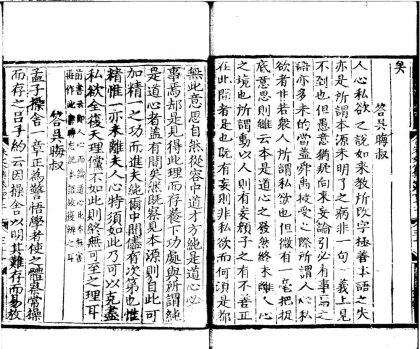 矣
答吳晦叔
人心私欲之說如來教所改字極善本語之失
亦是所謂本源未明了之病非一句一義上見
不到也但愚意猶疑向來妄論引必有事焉之
語亦多未的當蓋舜禹授受之際所謂人心私
欲者非若衆人所謂私欲也但微有一毫把捉
底意思則雖云本是道心之發然終未離人心
之境也所謂動以人則有妄顔子之有不善正
在此間者是也既有妄則非私欲而何須是都
無此意思自然從容中道才方純是道心必
事焉却是見得此理而存養下功處與所謂純
是道心者蓋有間矣然既察見本源則自此可
加精一之功而進夫純爾中間儘有次第也惟
精惟一亦未離夫人心特須如此乃可以克盡
私欲全復天理儻不如此則終無可至之理耳
答吳晦叔
孟子操舍一章正為警悟學者使之體察常操
而存之呂子約云因操舍以明其難存而易放